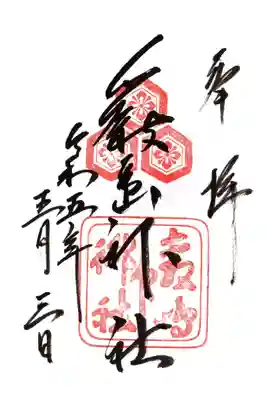 奉拝
嚴島神社
嚴島
神社
令和五年
五月三日